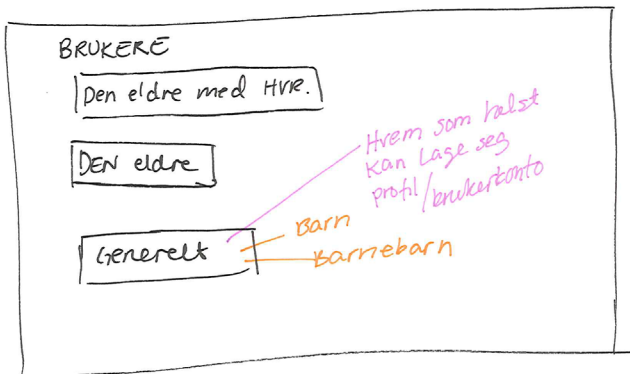 BRUKERE
Den eldre med HVR.
DEN eldre
Hvem som helst
kan lage seg
profil/brukerkonto
Generelt
Barn
Barnebarn